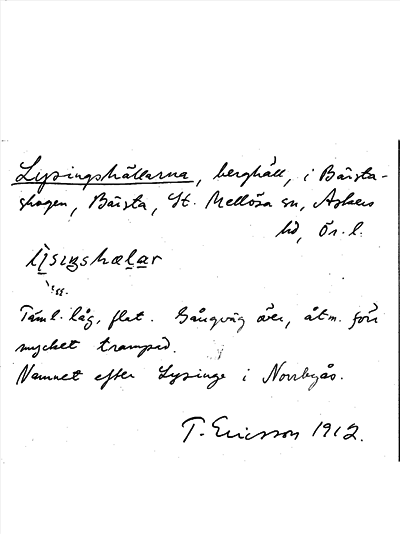 Lysingshällarna, berghäll, i Bärsta-
skogen, Bärsta, St. Mellösa sn, Askers
hd, Ör. l.
Täml. låg, flat. Gångväg över, åtm. förr
mycket trampad.
Namnet efter Lysinge i Norrbyås.
T. Ericsson 1912.